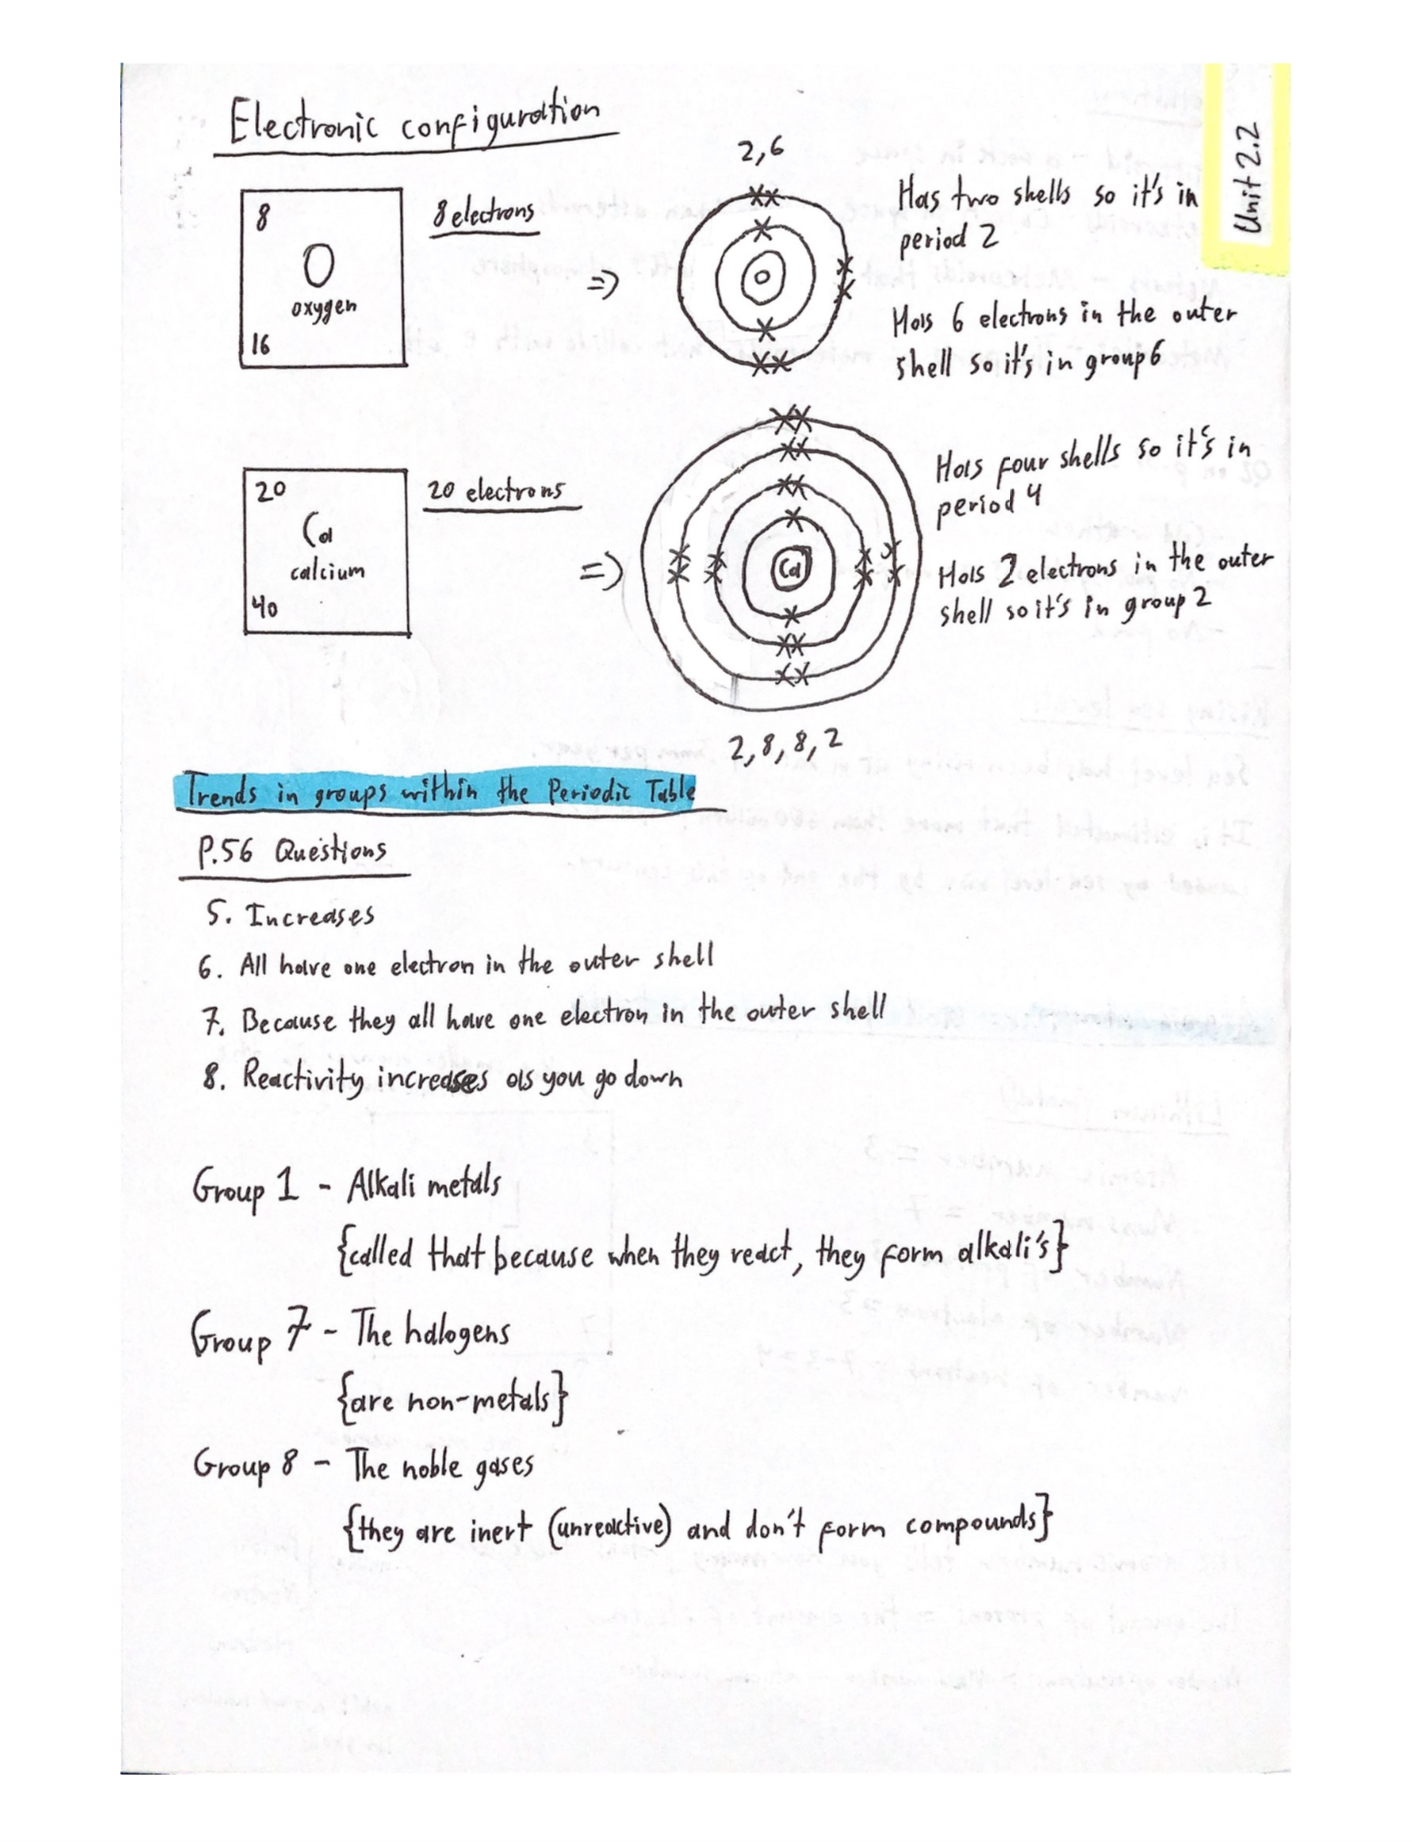 Electronic configuration
Unit 2.2
8
O
oxygen
16
8 electrons
=>
2,6
O
Has two shells so it's in
period 2
Has 6 electrons in the outer
shell so it's in group 6
20
Ca
calcium
40
20 electrons
=>
Ca
2,8,8,2
Has four shells so it's in
period 4
Has 2 electrons in the outer
shell so it's in group 2
Trends in groups within the Periodic Table
P.56 Questions
5. Increases
6. All have one electron in the outer shell
7. Because they all have one electron in the outer shell
8. Reactivity increases as you go down
Group 1 - Alkali metals
{called that because when they react, they form alkali's}
Group 7 - The halogens
{are non-metals}
Group 8 - The noble gases
{they are inert (unreactive) and don't form compounds}